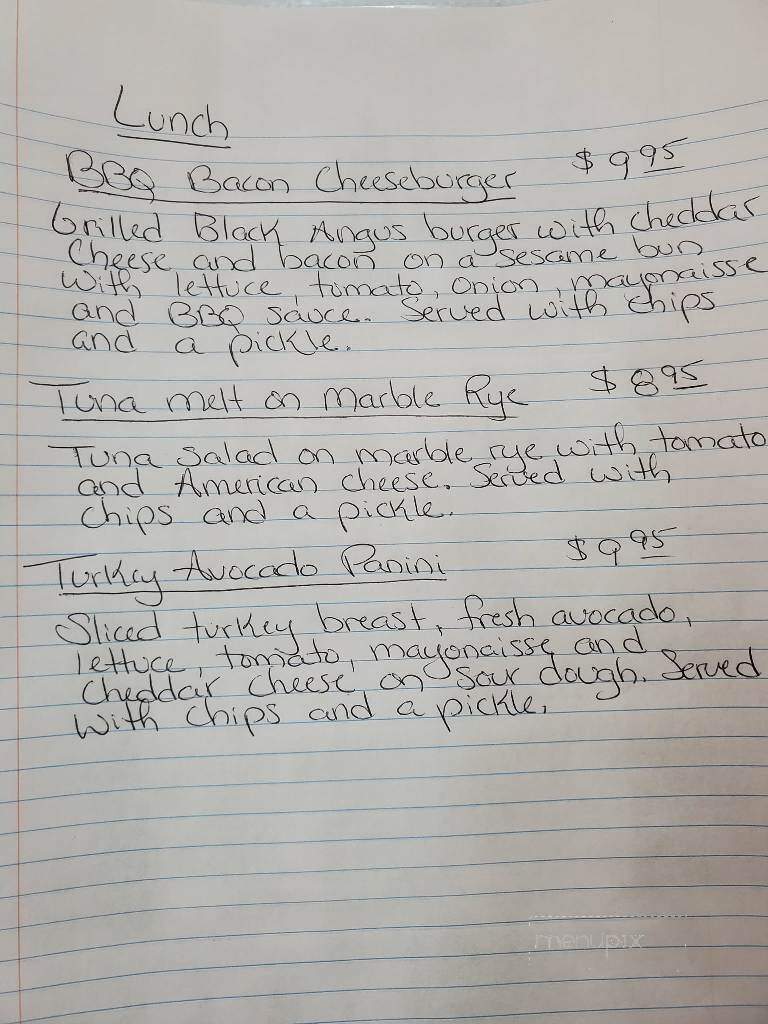 Lunch
BBQ Bacon Cheeseburger $9.95
Grilled Black Angus burger with cheddar
Cheese and bacon on a sesame bun
with lettuce, tomato, onion, mayonaisse
and BBQ sauce. Served with chips
and a pickle.
Tuna melt on Marble Rye $8.95
Tuna salad on marble rye with tomato
and American cheese. Served with
chips and a pickle.
Turkey Avocado Panini $9.95
Sliced turkey breast, fresh avocado,
lettuce, tomato, mayonaisse and
Cheddar cheese on sour dough. Served
with chips and a pickle.
menupix